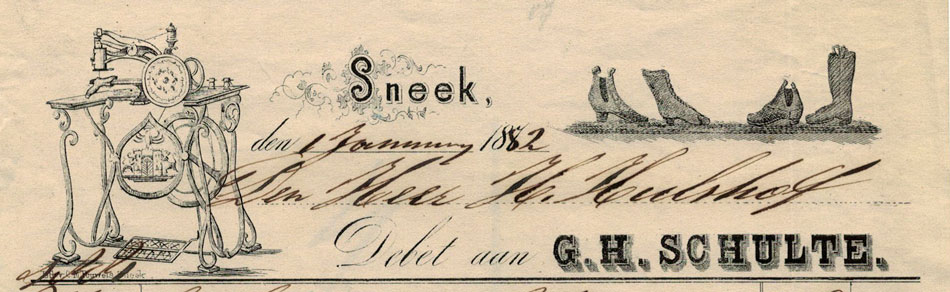 Sneek,
den 1 January 1882
Den Heer H. Hulshof
Debet aan G. H. SCHULTE.